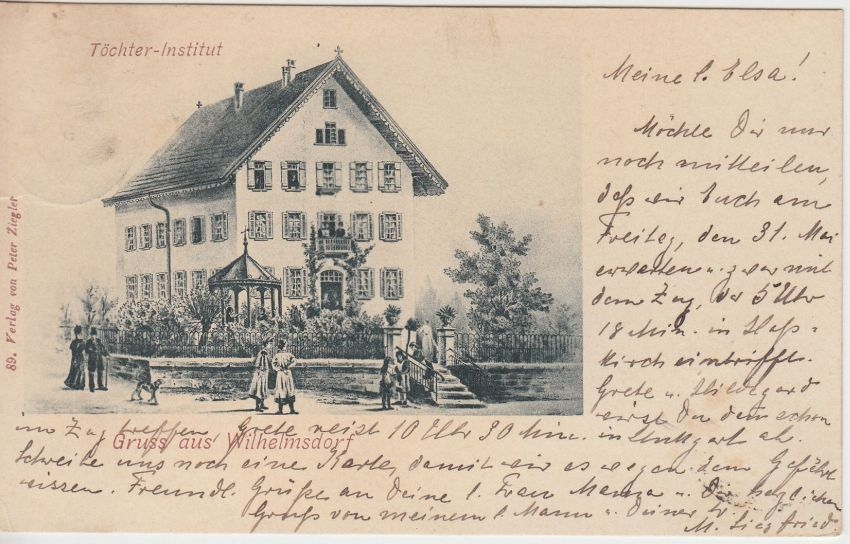 Töchter-Institut
89. Verlag von Peter Ziegler
Gruss aus Wilhelmsdorf
Meine l. Elsa!
Möchte Dir nur
noch mitteilen,
daß wir Euch am
Freitag, den 31. Mai
erwarten u. zwar mit
dem Zug, der 5 Uhr
18 Min. in Hoß-
kirch eintrifft.
Grete u. Hildegard
wirst Du dem schon
im Zug treffen, Grete reist 10 Uhr 30 Min. in Stuttgart ab.
Schreibe uns noch eine Karte, damit wir es wegen dem Gefährt
wissen. Freundl. Grüße an Deine l. Frau Mama u. Dir herzlichen
Gruß von meinem l. Mann u. Deiner
M. Siegfried